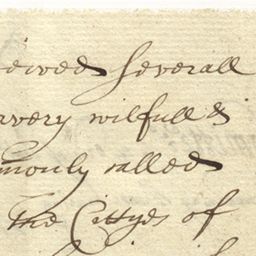 iewed severall
very wilfull &
monly called
the Cittyes of